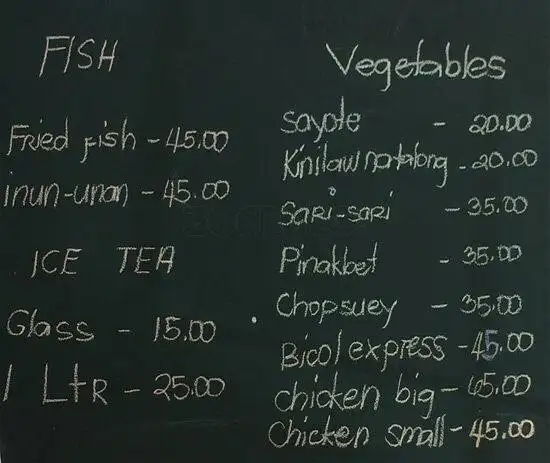 FISH
Fried fish - 45.00
inun-unan - 45.00
ICE TEA
Glass - 15.00
1 LtR - 25.00
Vegetables
sayote - 20.00
Kinilaw natalong - 20.00
Sari-sari - 35.00
Pinakbet - 35.00
Chopsuey - 35.00
Bicol express - 45.00
chicken big - 65.00
Chicken small - 45.00